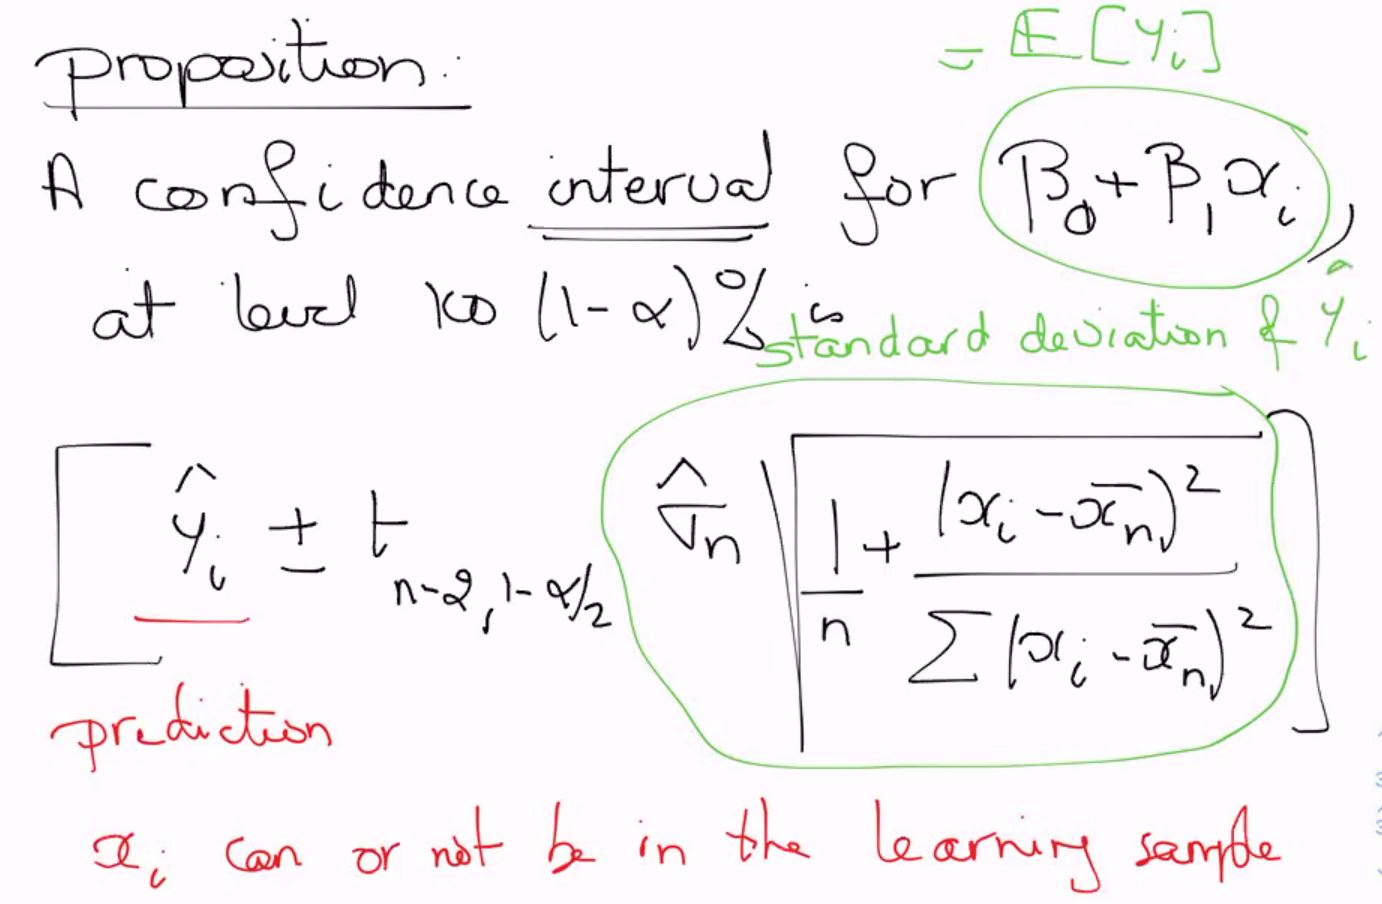 proposition:
= E[Y_i]
A confidence interval for β_0 + β_1 x_i,
at level 100 (1-α)% is
standard deviation of Ŷ_i
[ŷ_i ± t_{n-2, 1-α/2} σ̂_n √(1/n + (x_i - x̄_n)² / Σ(x_i - x̄_n)²)]
prediction
x_i can or not be in the learning sample